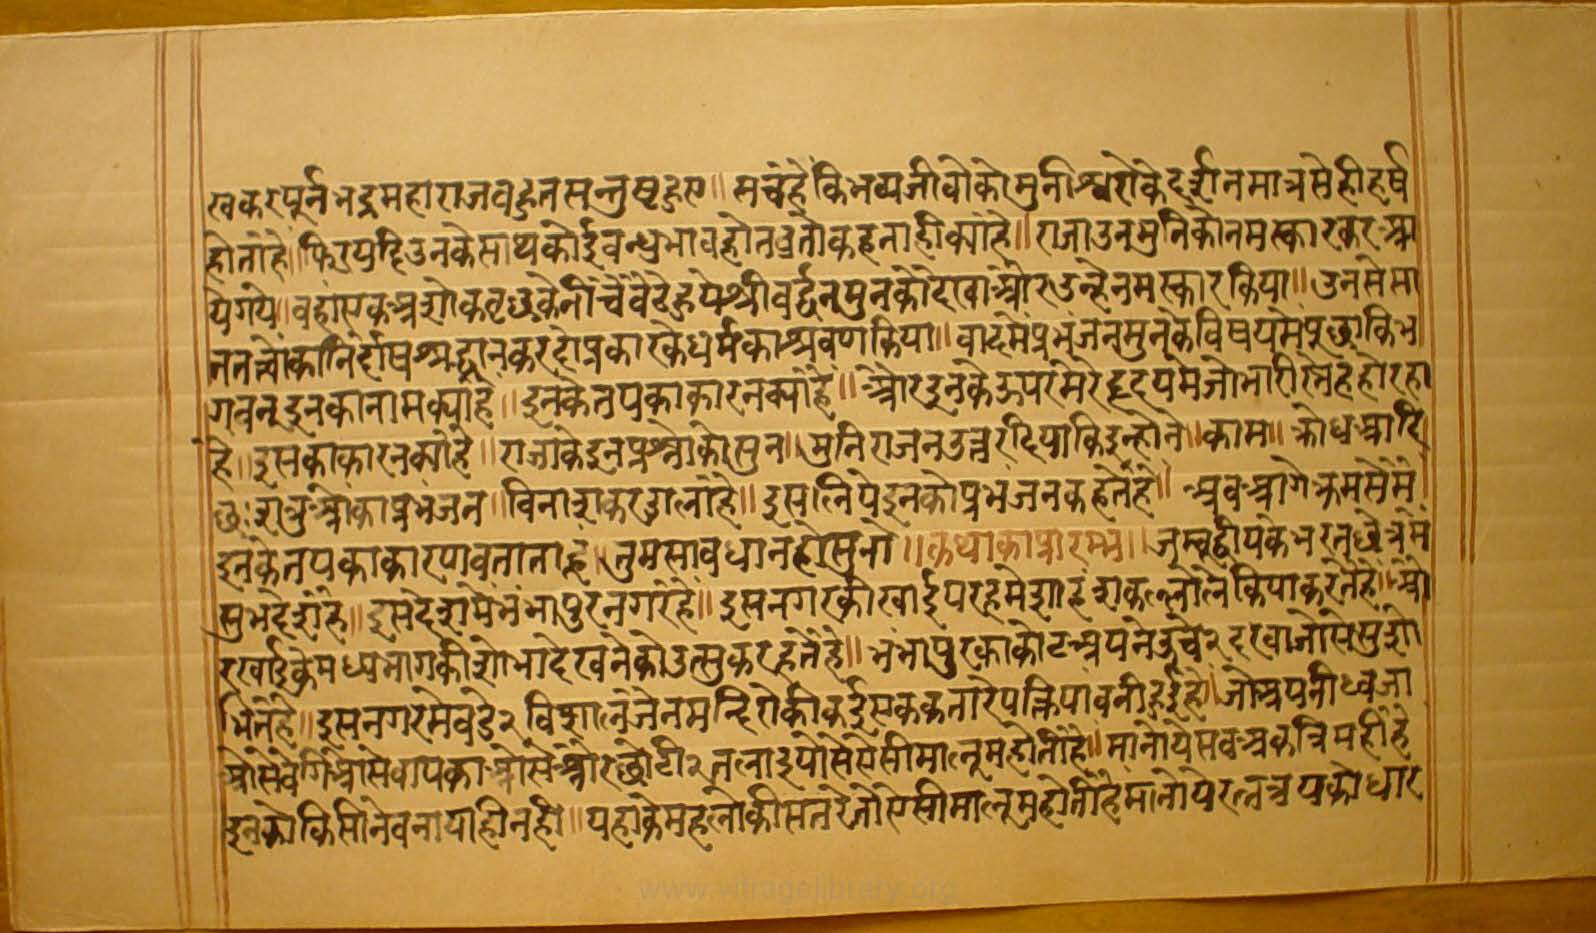 खकर पूर्न भद्र महाराज बहुत सन्तुष्ट हुए॥ सच है कि भव्य जीवों को मुनीश्वरों के दर्शन मात्र से ही हर्ष
होता है॥ फिर यदि उनके साथ कोई बन्धुभाव हो तब तो कहना ही क्या है॥ राजा उन मुनि को नमस्कार कर आ
ये गये॥ वहां एक अशोक वृछ के नीचे बैठे हुये श्री वर्द्धन मुन को देखा और उन्हे नमस्कार किया॥ उनसे सा
त तत्त्वों का निर्दोष श्रद्धान कर दो प्रकार के धर्म का श्रवण किया॥ बाद में प्रभंजन मुन के विषय में पूछा कि भ
गवन् इनका नाम क्या है॥ इनके तप का कारन क्या है॥ और इनके ऊपर मेरे हृदय में जो भारी स्नेह हो रहा
है॥ इसका कारन क्या है॥ राजा के इन प्रश्नों को सुन॥ मुनिराज न उत्तर दिया कि इन्होंने॥ काम॥ क्रोध आदि
छः शत्रुओं का प्रभंजन॥ विनाश कर डाला है॥ इस लिये इनको प्रभंजन कहते है॥ अब आगे क्रम से मैं
इनके तप का कारण बताता हूं॥ तुम सावधान हो सुनो॥ कथा का प्रारम्भ॥ जम्बूद्वीप के भरत छेत्र में
सुभ देश है॥ इस देश में भंभापुर नगर है॥ इस नगर की खाई पर हमेशा हंश कल्लोले किया करते है॥ ओ
र खाई के मध्य भाग की शोभा देखने को उत्सुक रहते है॥ भंभापुर का कोट अपने ऊचे २ दरवाजो से सुशो
भित है॥ इस नगर में बडे २ विशाल जैन मन्दिरो की कई एक कतारे पक्तिया बनी हुई है॥ जो अपनी ध्वजा
ओ से बगिओ से वापकाओ से ओर छोटी २ तलाइयो से एसी मालूम होती है॥ मानो ये सब अकत्रिम ही है
इनको किसी ने बनाया ही नही॥ यहा के महलो की सतरे जो एसी मालूम होती है मानो ये रत्नत्रय को धार
www.vitragelibrery.org